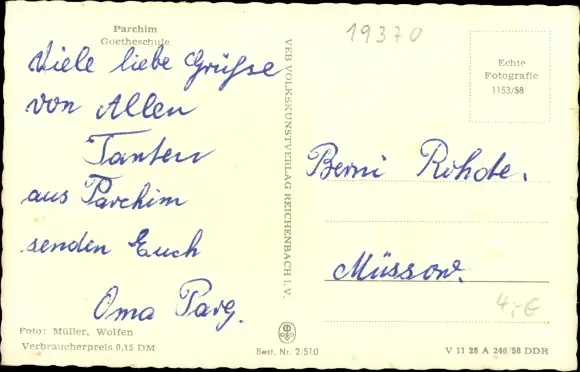 Parchim
Goetheschule
Viele liebe Grüße
von Allen
Tanten
aus Parchim
senden Euch
Oma Parg.
Foto: Müller, Wolfen
Verbraucherpreis 0,15 DM
VEB VOLKSKUNSTVERLAG REICHENBACH I. V.
Best. Nr. 2/510
19370
Echte
Fotografie
1153/58
Berni Rohde.
Müssow.
4,-€
V 11 28 A 246/58 DDR